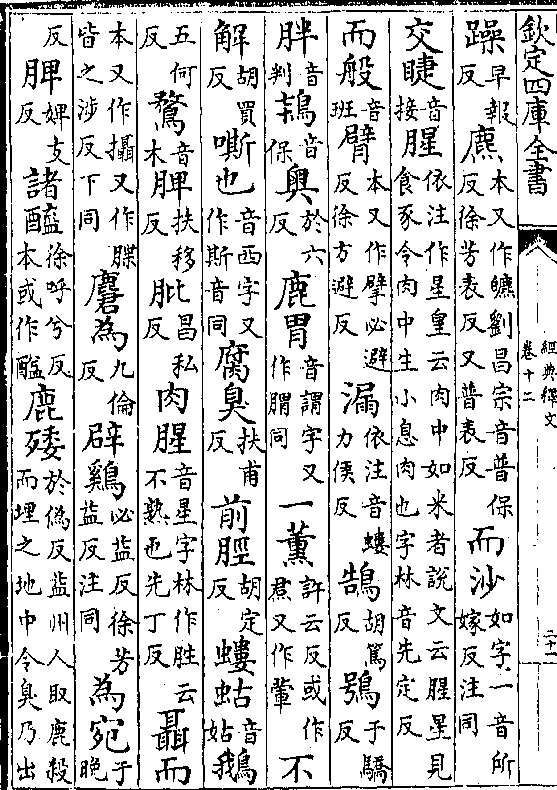 欽定四庫全書
經典釋文
卷十二
二十一
躁早報反麃本又作皫劉昌宗音普保反徐芳表反又普表反而沙如字一音所嫁反注同
交睫音接腥依注作星皇云肉中如米者說文云腥星見食豕令肉中生小息肉也字林音先定反
而般音班臂本又作擘必避反徐方避反漏依注音螻力侯反鵠胡篤反鴞于驕反
胖音判鴇音保奧於六反鹿胃音謂字又作腪同一薰許云反或作焄又作葷不
解胡買反嘶也音西字又作斯音同腐臭扶甫反前脛胡定反螻蛄音姑鵝
五何反鶩音木脾扶移反肶昌私反肉腥音星字林作胜云不熟也先丁反聶而
本又作攝又作牒皆之涉反下同麕為九倫反辟雞必益反徐芳益反注同為宛于晚
反脾婢支反諸醯徐呼兮反本或作醢鹿㱬於偽反益州人取鹿殺而埋之地中令臭乃出